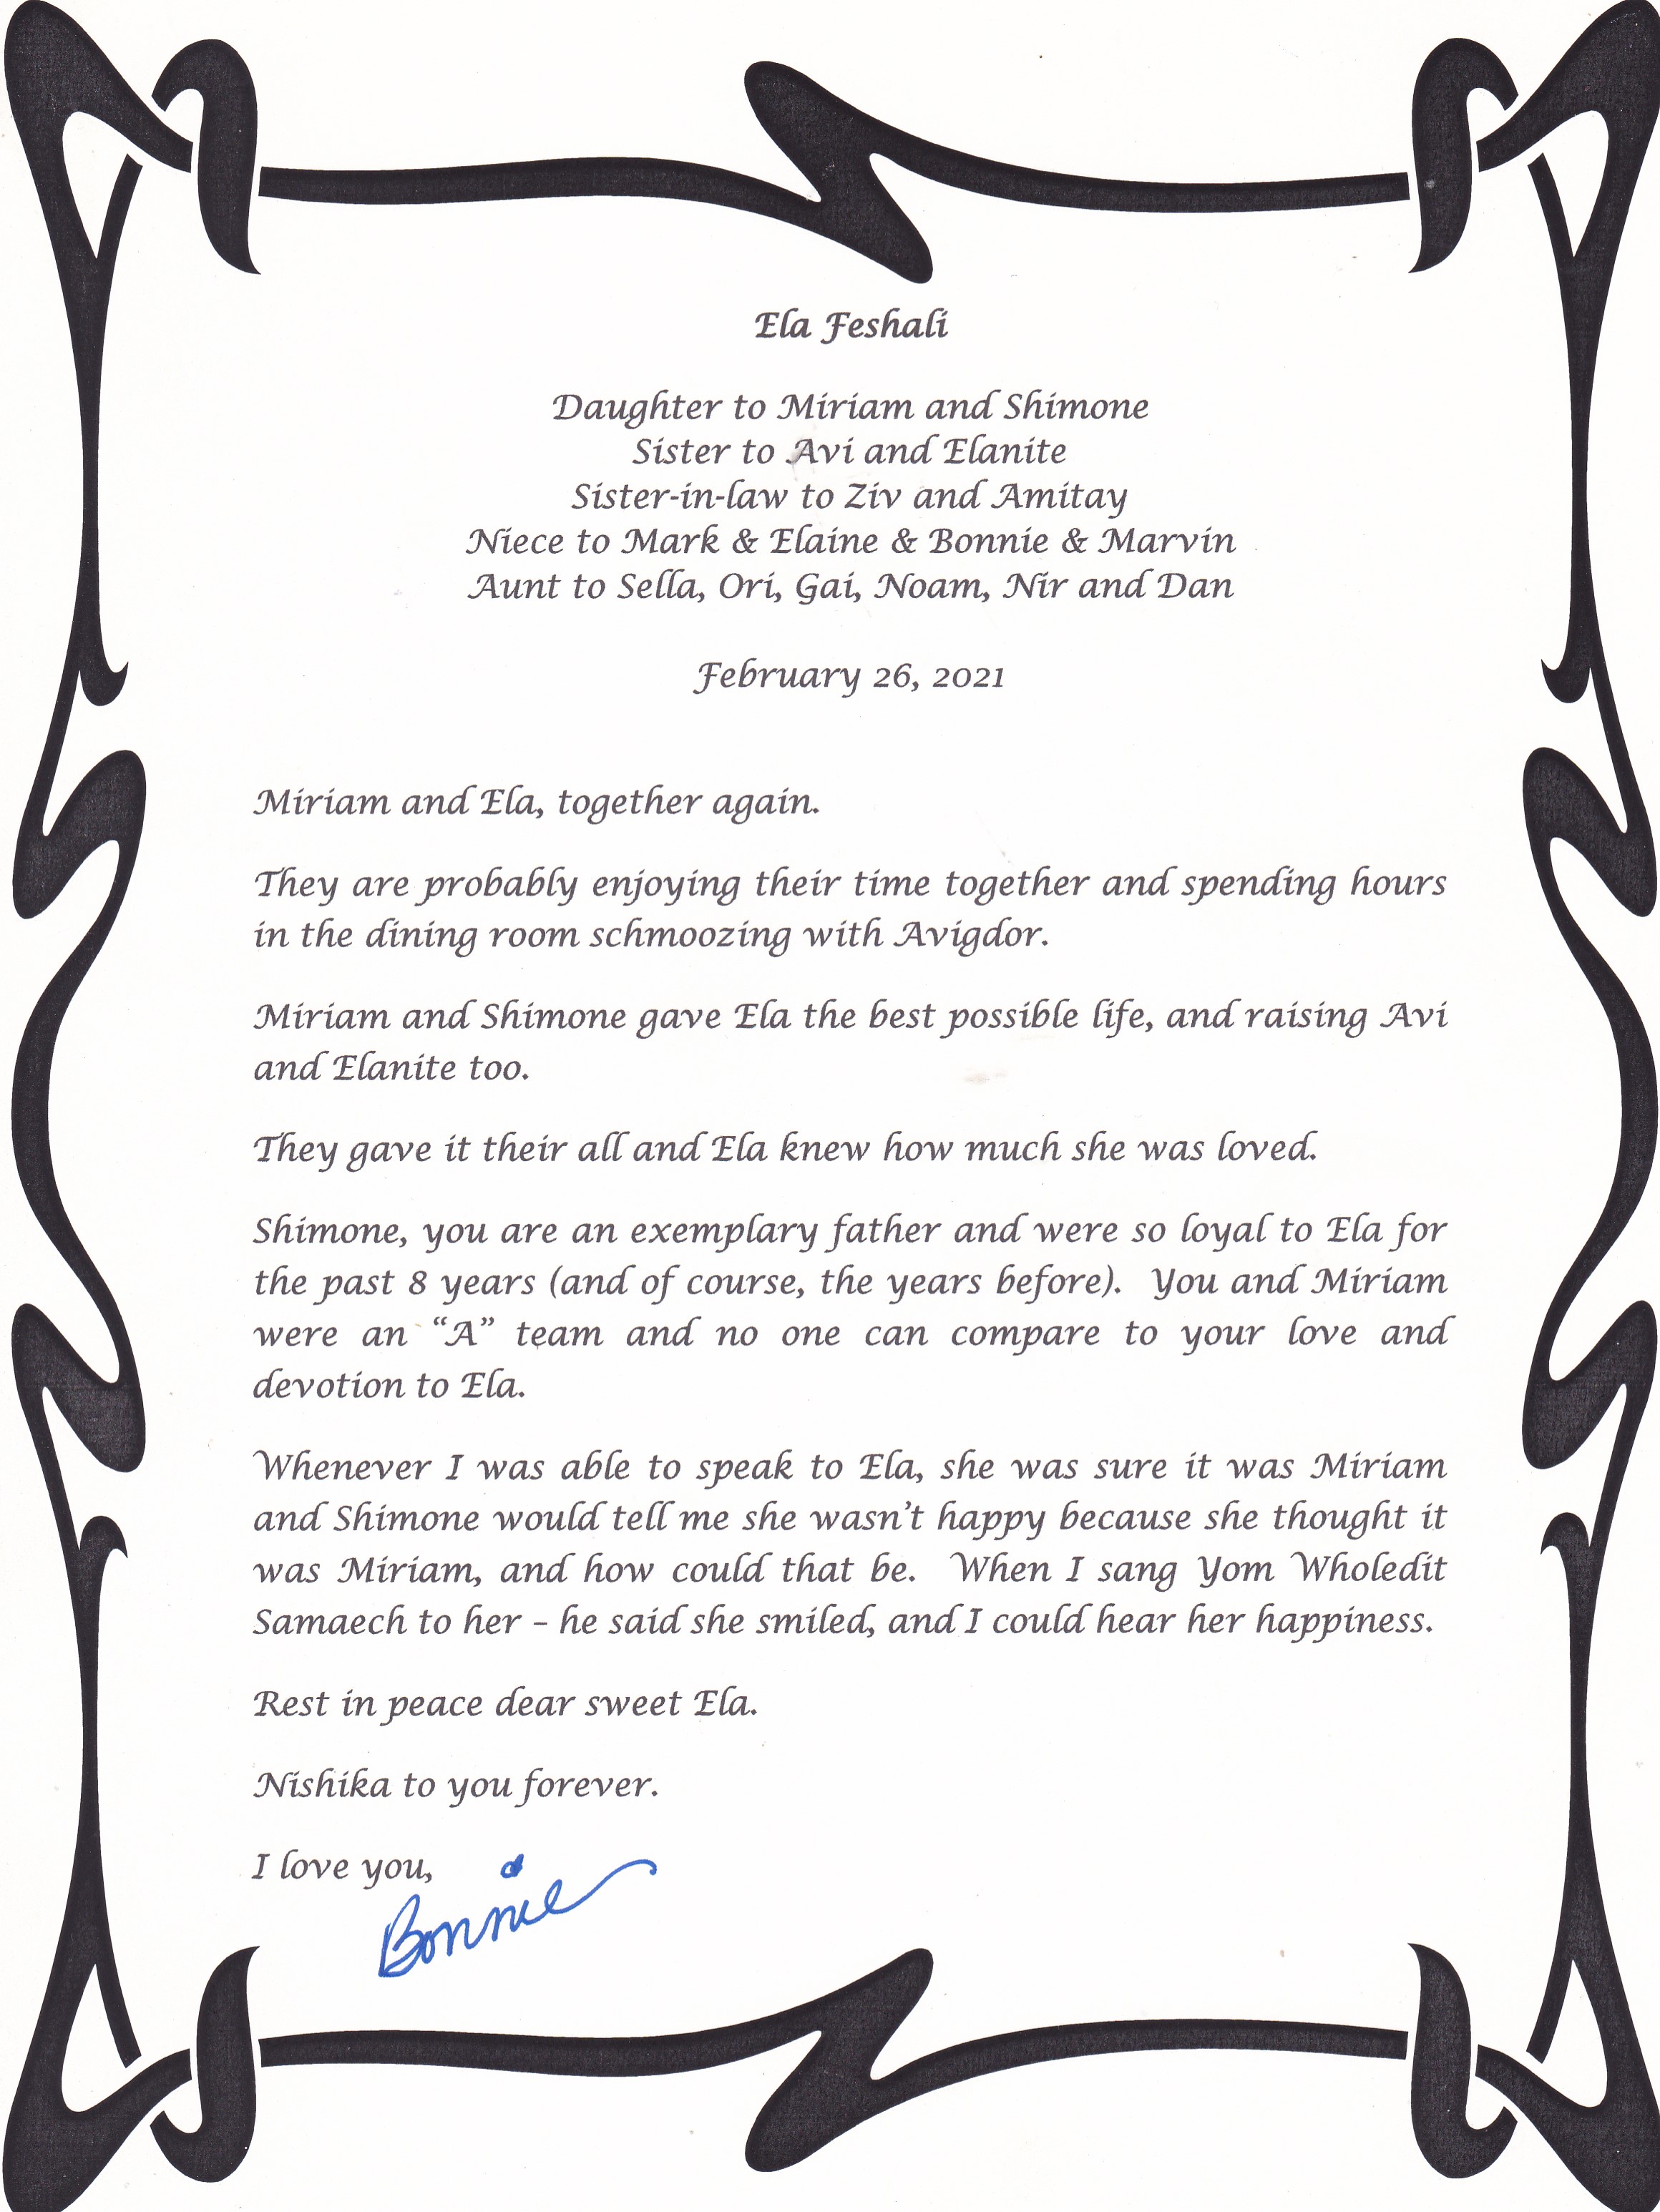 Ela Feshali
Daughter to Miriam and Shimone
Sister to Avi and Elanite
Sister-in-law to Ziv and Amitay
Niece to Mark & Elaine & Bonnie & Marvin
Aunt to Sella, Ori, Gai, Noam, Nir and Dan
February 26, 2021
Miriam and Ela, together again.
They are probably enjoying their time together and spending hours
in the dining room schmoozing with Avigdor.
Miriam and Shimone gave Ela the best possible life, and raising Avi
and Elanite too.
They gave it their all and Ela knew how much she was loved.
Shimone, you are an exemplary father and were so loyal to Ela for
the past 8 years (and of course, the years before).  You and Miriam
were an “A” team and no one can compare to your love and
devotion to Ela.
Whenever I was able to speak to Ela, she was sure it was Miriam
and Shimone would tell me she wasn’t happy because she thought it
was Miriam, and how could that be.  When I sang Yom Wholedit
Samaech to her – he said she smiled, and I could hear her happiness.
Rest in peace dear sweet Ela.
Nishika to you forever.
I love you,
Bonnie